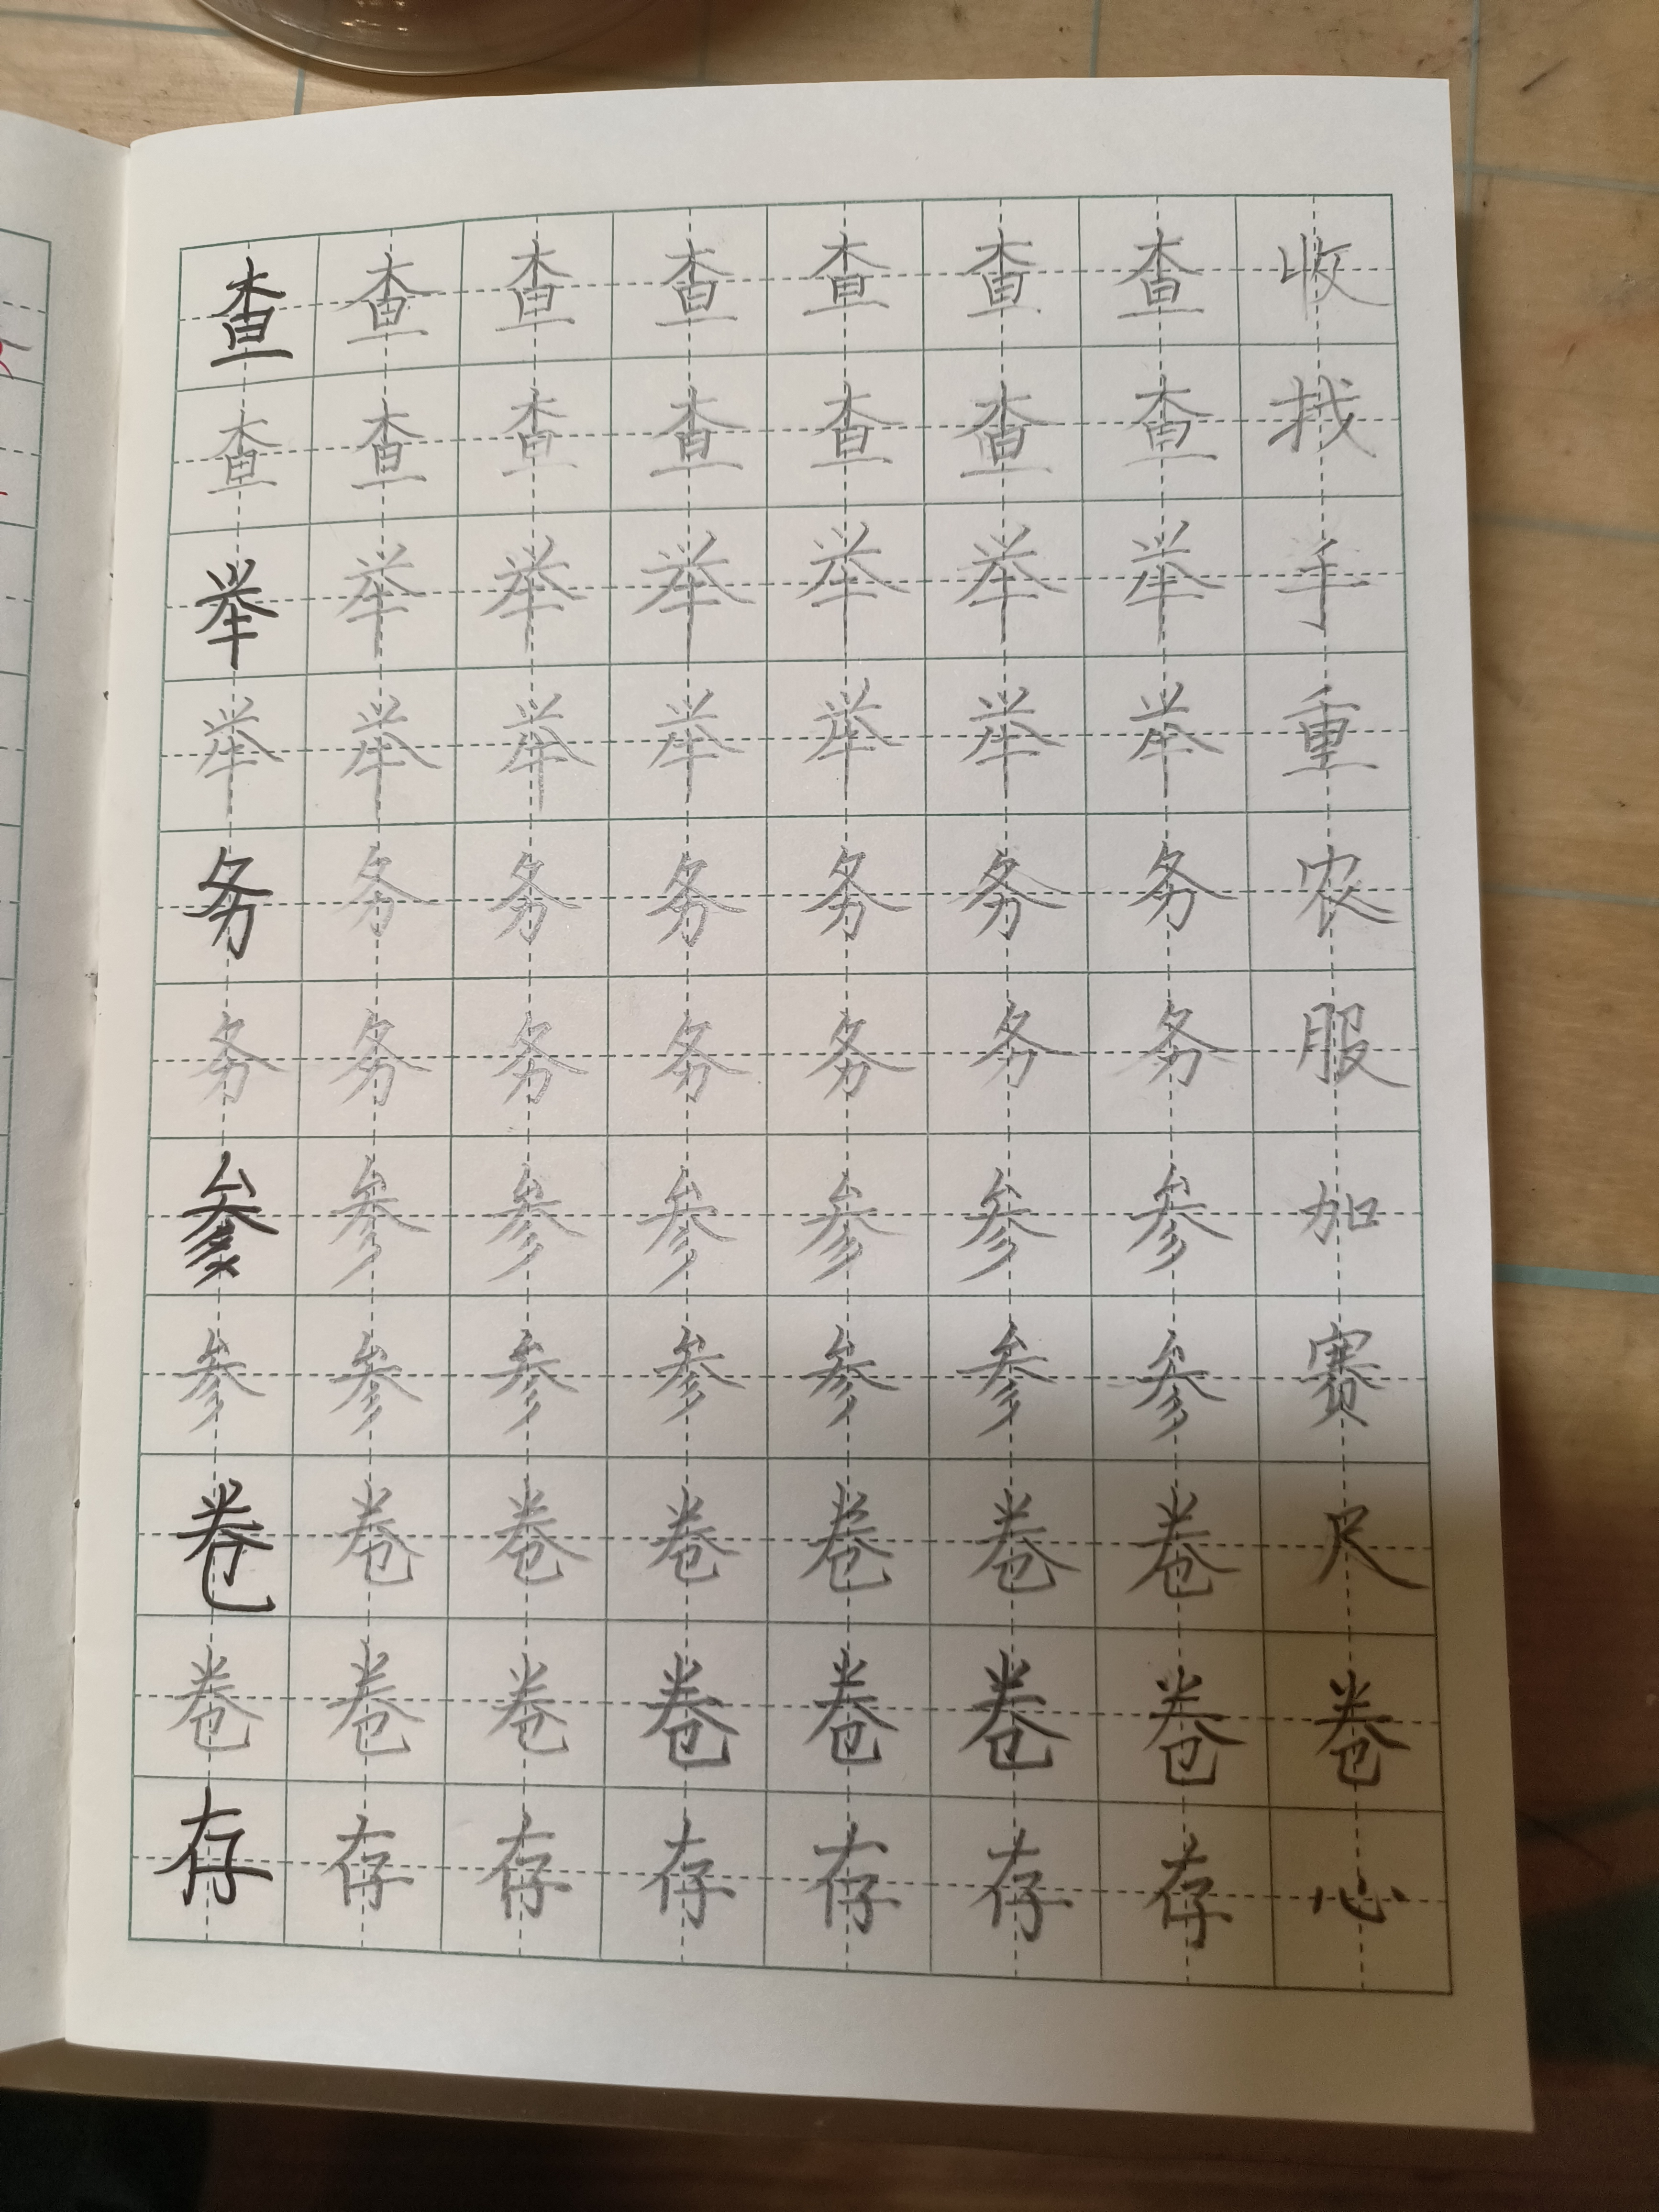 查查查查查查查收
查查查查查查查找
举举举举举举举手
举举举举举举举重
务务务务务务务农
务务务务务务务服
参参参参参参参加
参参参参参参参赛
卷卷卷卷卷卷卷尺
卷卷卷卷卷卷卷卷
存存存存存存存心